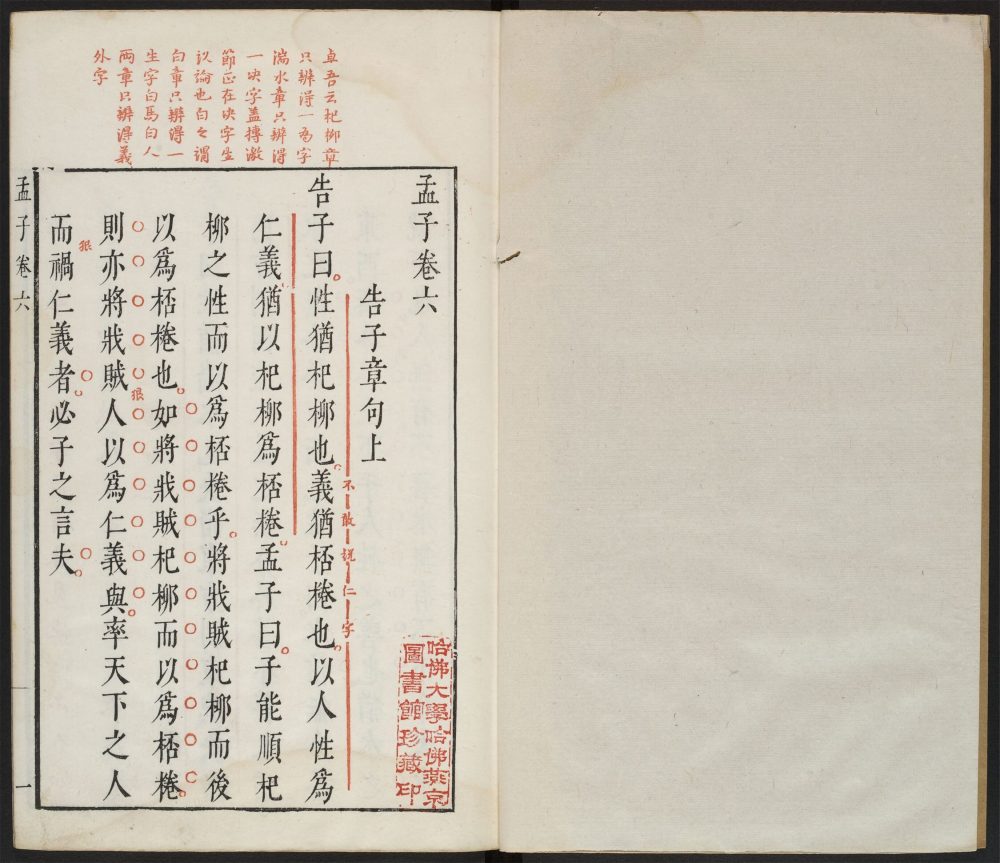 卓吾云杞柳章
只辨得一為字
湍水章只辨得
一决字蓋摶激
節正在决字生
议論也白之謂
白章只辨得一
生字白馬白人
兩章只辨得義
外字
孟子卷六
告子章句上
告子曰性猶杞柳也義猶桮棬也以人性爲
不敢說仁字
仁義猶以杞柳爲桮棬孟子曰子能順杞
柳之性而以爲桮棬乎將戕賊杞柳而後
以爲桮棬也如將戕賊杞柳而以爲桮棬
狠
則亦將戕賊人以爲仁義與率天下之人
狠
而禍仁義者必子之言夫
孟子卷六
一
哈佛大學哈佛燕京
圖書館珍藏印